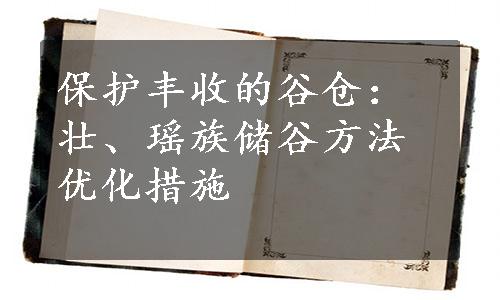 保护丰收的谷仓：
壮、瑶族储谷方法
优化措施